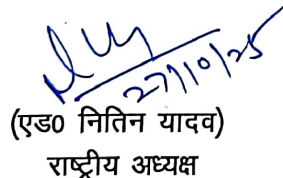 27/10/25
(एड0 नितिन यादव)
राष्ट्रीय अध्यक्ष